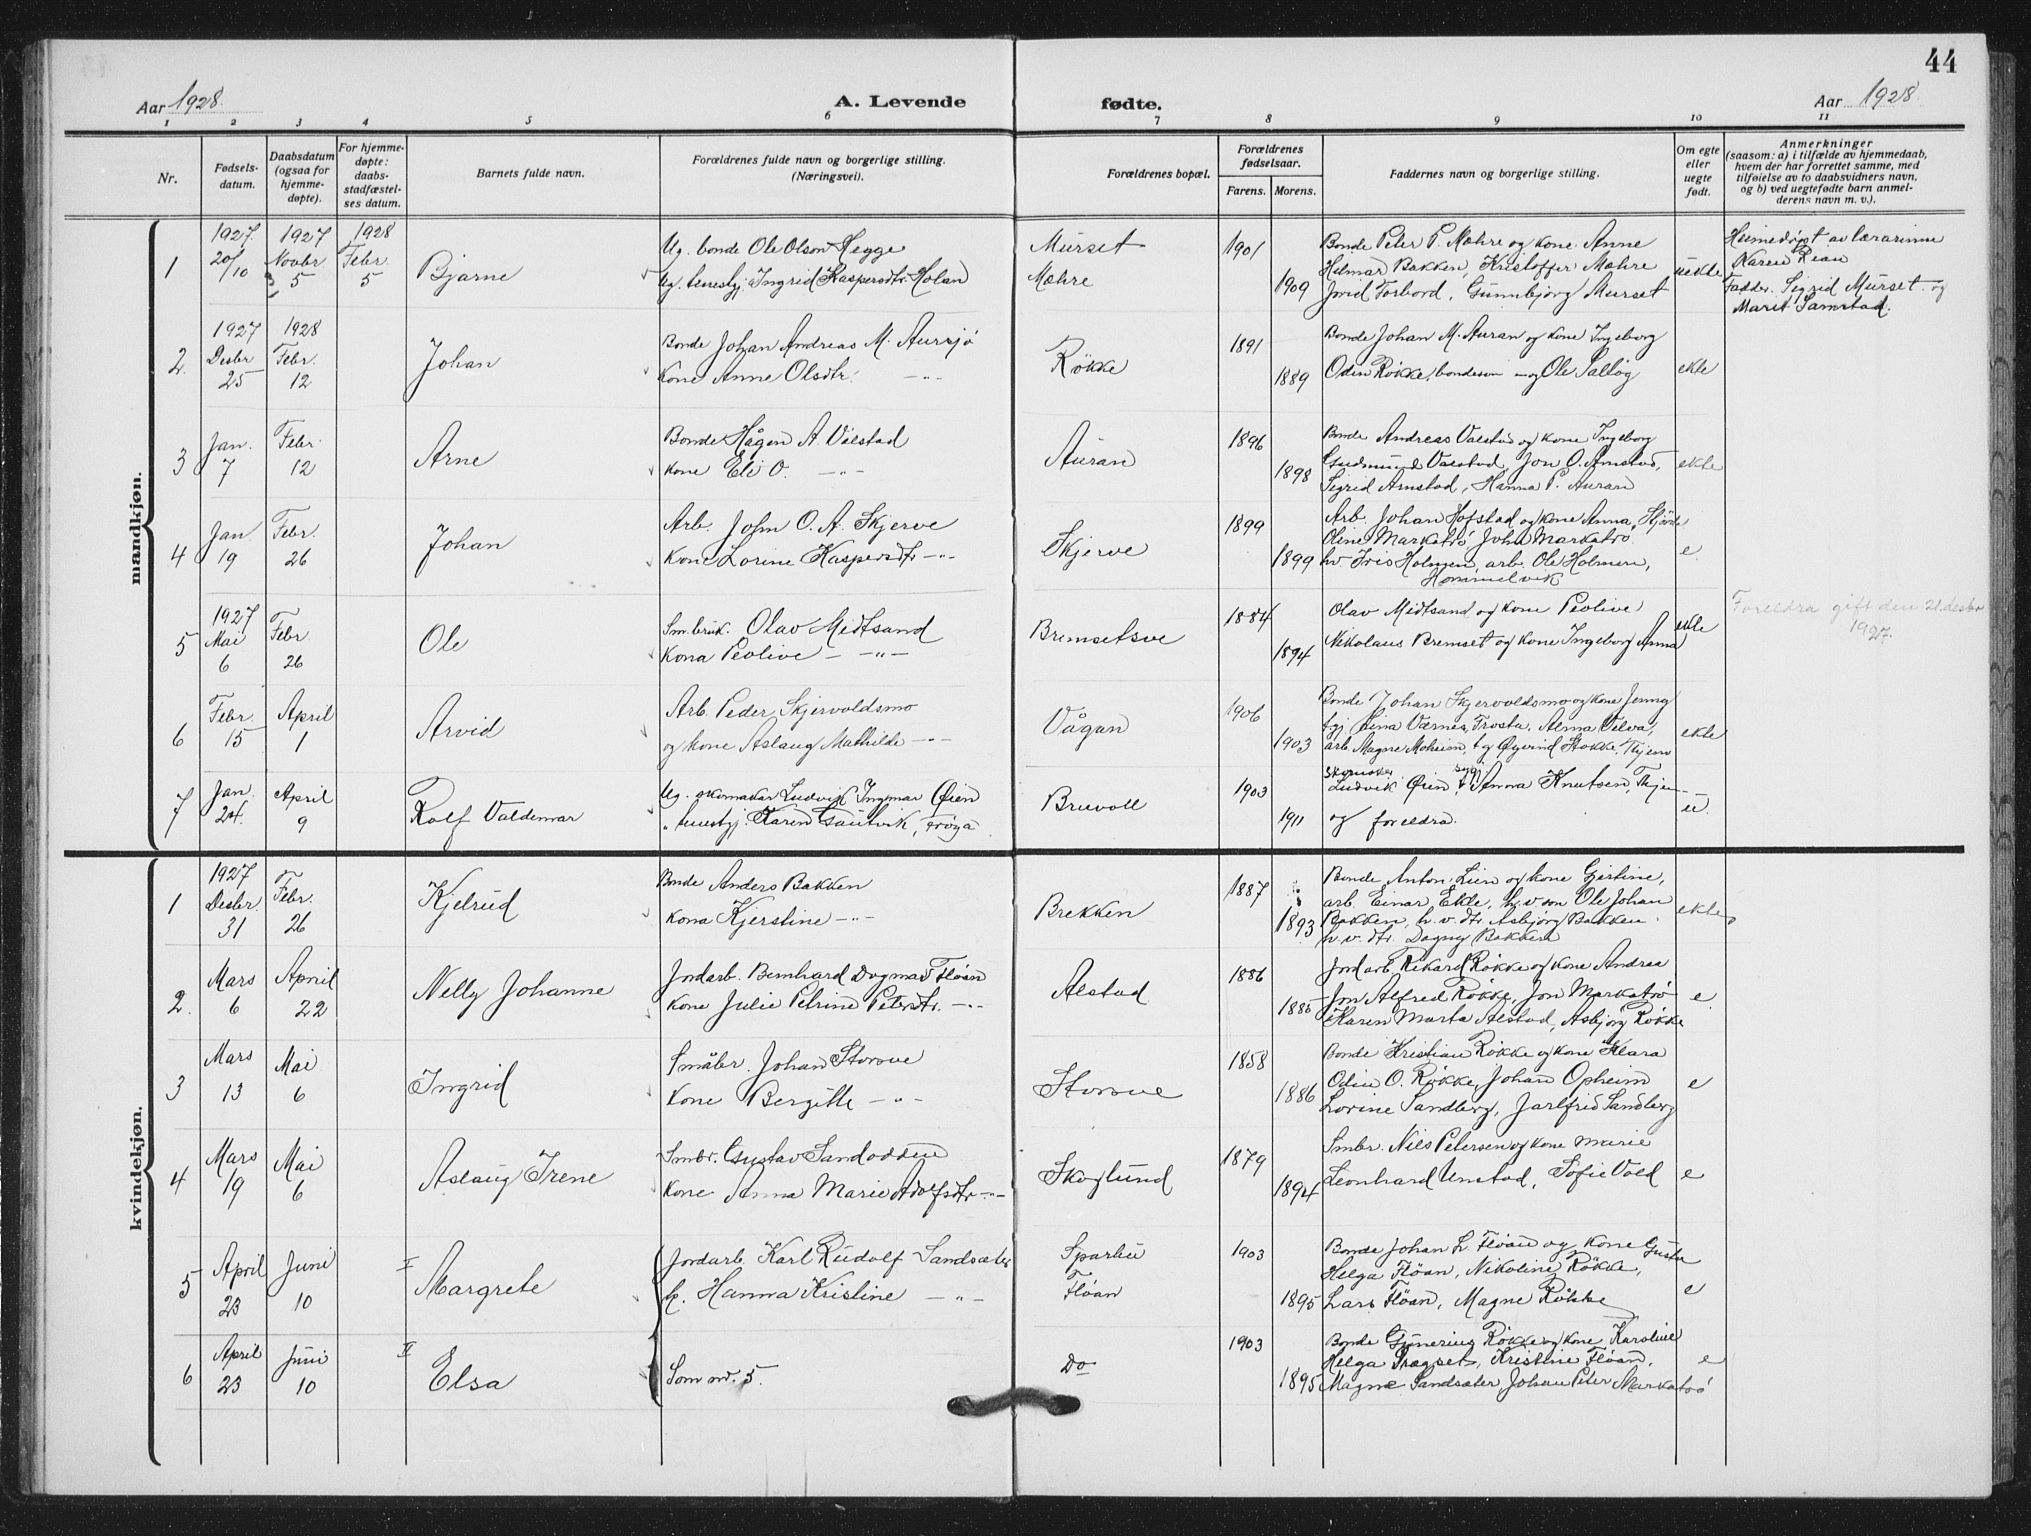 44
Aar 1928. A. Levende fødte. Aar 1928.
1 2 3 4 5 6 7 8 9 10 11
Nr.
Fødsels-
datum.
Daabsdatum
(ogsaa for
hjemme-
døpte).
For hjemme-
døpte:
daabs-
stadfæstel-
ses datum.
Barnets fulde navn.
Forældrenes fulde navn og borgerlige stilling.
(Næringsvei).
Forældrenes bopæl.
Forældrenes
fødselsaar.
Farens. Morens.
Faddernes navn og borgerlige stilling.
Om egte
eller
uegte
født.
Anmerkninger
(saasom: a) i tilfælde av hjemmedaab,
hvem der har forrettet samme, med
tilføielse av to daabsvidners navn,
og b) ved uegtefødte barn anmel-
derens navn m. v.).
mandkjøn.
1
1927
20/10
1927
Novbr.
5
1928
Febr.
5
Bjarne
Ug. bonde Ole Olson Hegge
Ug. tenestgj. Ingrid Kaspersdtr. Holan
Murset
Mæhre
1901
1909
Bonde Peter P. Mæhre og kone Anne
Helmar Bakken, Kristoffer Mæhre
Jorid Forbord, Gunnbjørg Murset
uekte
Heimedøpt av lærarinne
Karen Rean
Fadder. Sigrid Murset og
Marit Samstad.
2
1927
Desbr
25
1928
Febr.
12
Johan
Bonde Johan Andreas M. Aursjø
Kone Anne Olsdtr. -"-
Røkke
1891
1889
Bonde Johan M. Auran og kone Ingeborg
Odin Røkke, bondeson og Ole Salløg
ekte
3
Jan.
7
Febr.
12
Arne
Bonde Hågen A. Valstad
Kone Eli O. -"-
Auran
1896
1898
Bonde Andreas Valstad og kone Ingeborg
Gudmund Valstad, Jon O. Arnstad,
Sigrid Arnstad, Hanna P. Auran
ekte
4
Jan.
19
Febr.
26
Johan
Arb. John O. A. Skjerve
Kone Lorine Kaspersdtr. -"-
Skjerve
1899
1899
Arb. Johan Hofstad og kone Anna, Stjørda
Oline Markabrø, John Markabrø
hv. Iris Holmen, arb. Ole Holmen,
Hommelvik
e
5
1927
Mai
6
Febr.
26
Ole
Sm.bruk. Olav Midtsand
Kona Peolive - -"-
Bremsetsve
1884
1894
Olav Midtsand og kone Peolive
Nikolaus Bremset og kone Ingeborg Anna
ekte
Foreldra gift den 21. desbr
1927.
6
Febr.
15
April
1
Arvid
Arb. Peder Skjervoldsmo
og kone Aslaug Mathilde -"-
Vågan
1906
1903
Bonde Johan Skjervoldsmo og kone Jenny
tgj. Lina Værnes, Frosta, Alma Velva,
arb. Magne Moheim, og Øyvind Stokke, Thjem
ekte
7
Jan.
24.
April
9
Rolf Valdemar
Ug. skomaker Ludvik Ingemar Øien
" tenestgj. Karen Gautvik, Frøya
Bruvoll
1903
1911
Skomaker
Ludvik Øien, sygj. Anna Knutsen, Thjem
og foreldra.
u.
kvindekjøn.
1
1927
Desbr.
31
Febr.
26
Kjelrud
Bonde Anders Bakken
Kona Kjerstine -"-
Brekken
1887
1893
Bonde Anton Lien og kone Gjertine,
arb. Einar Ekle, h.v. søn Ole Johan
Bakken, h.v. dtr. Asbjørg Bakken.
h.v. dtr. Dagny Bakken
ekte
2.
Mars
6
April
22
Nelly Johanne
Jordarb. Bernhard Dagmar Fløan
Kone Julie Petrine Petersdtr. -"-
Alstad
1886
1885
Jordarb. Rikard Røkke og kone Andrea
Jon Alfred Røkke, Jon Markabrø
Karen Marta Alstad, Asbjørg Røkke
e
3
Mars
13
Mai
6
Ingrid
Småbr. Johan Storsve
Kone Bergitte - "-
Storsve
1858
1886
Bonde Kristian Røkke og kone Klara
Odin O. Røkke, Johan Opheim
Lorine Sandberg, Jarlfrid Sandberg
e
4
Mars
19
Mai
6
Aslaug Irene
Smbr. Gustav Sandodden
Kone Anna Marie Adolfsdtr. -"-
Skoglund
1879
1894
Smbr. Nils Petersen og kone Marie
Leonhard Unstad, Sofie Vold
e
5
April
23
Juni
10
I
Margrete
Jordarb. Karl Rudolf Sandsæter
k. Hanna Kristine - " -
Sparbu
Fløan
1903
1895
Bonde Johan L. Fløan og kone Gusta
Helga Fløan, Nikoline Røkke,
Lars Fløan, Magne Røkke
e
6
April
23
Juni
10
II
Elsa
Som nr. 5.
Do
1903
1895
Bonde Gunerius Røkke og kone Karoline
Helga Dragset, Kristine Fløan,
Magne Sandsæter, Johan Peter Markabrø
e